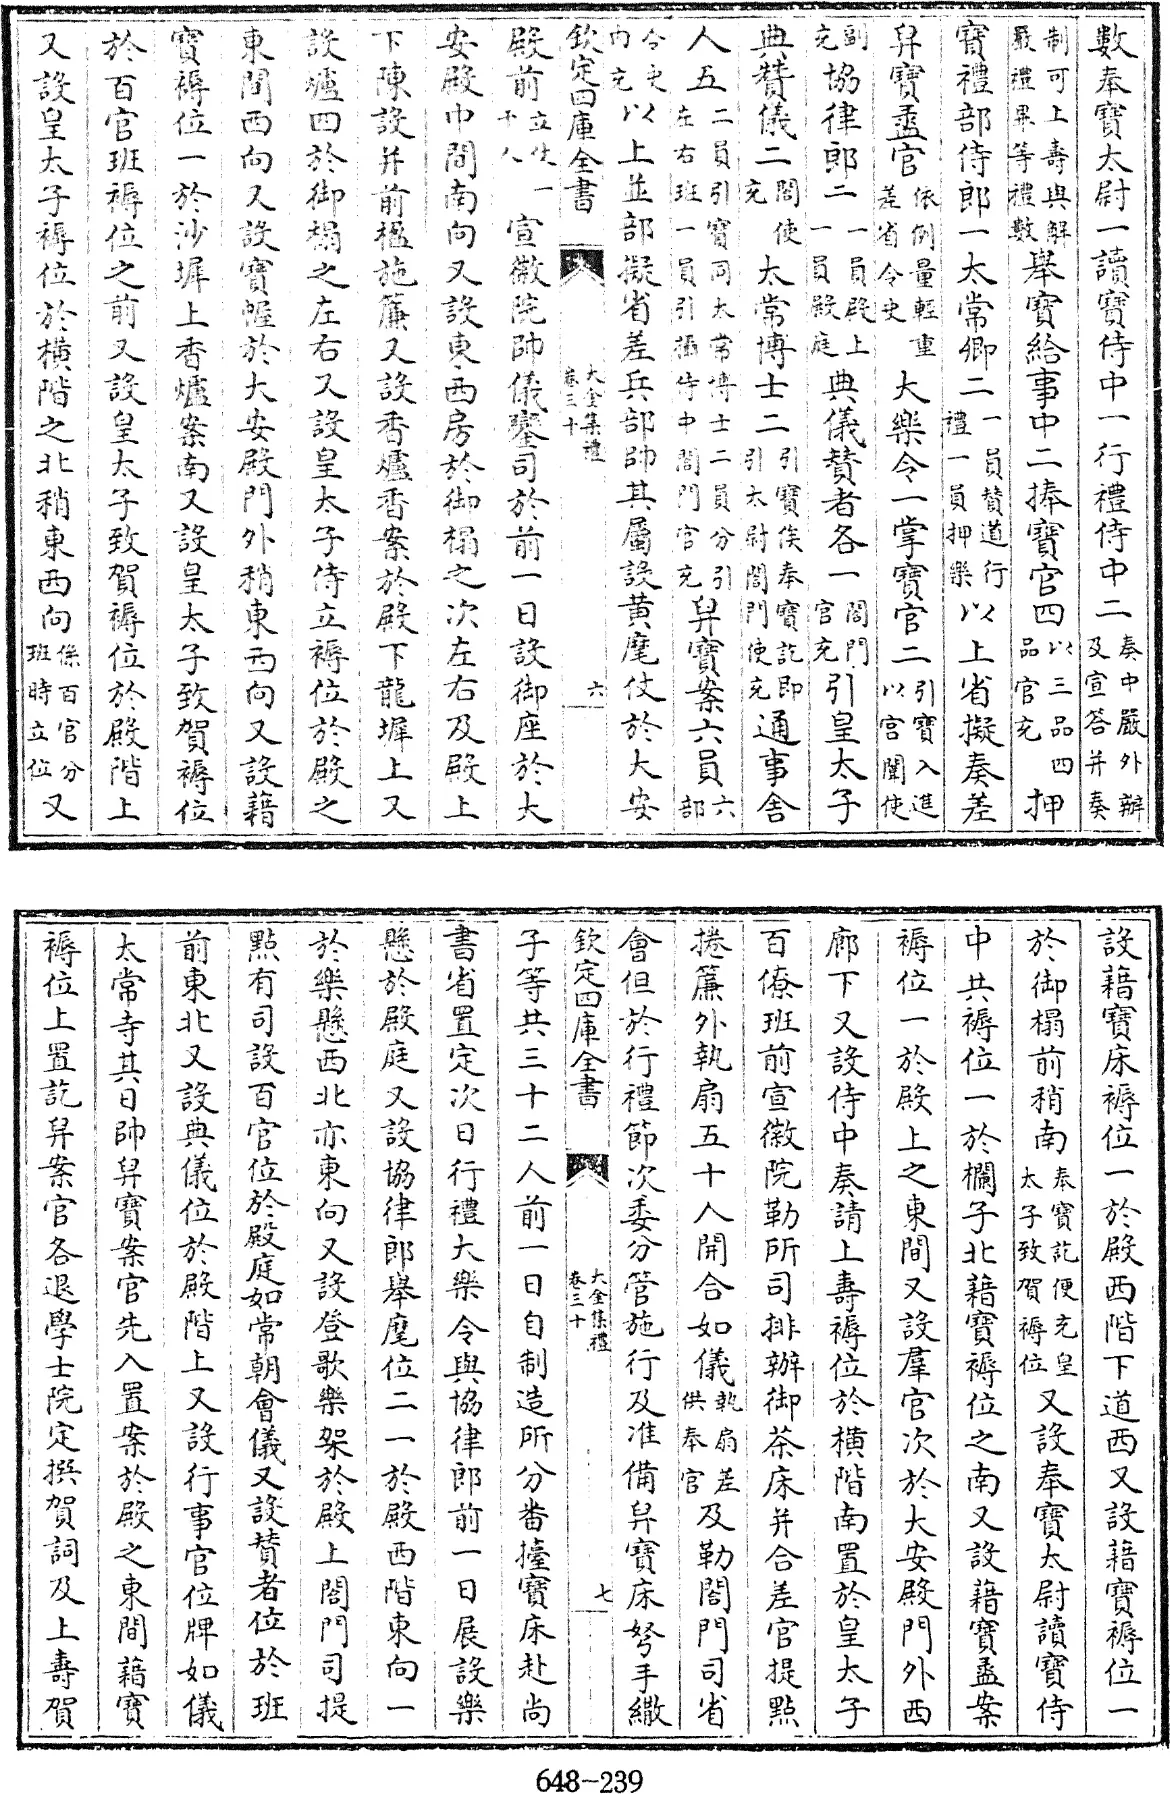 數奉寶太尉一讀寶侍中一行禮侍中二奏中嚴外辦及宣答并奏
制可上壽與解嚴禮畢等禮數舉寶給事中二捧寶官四以三品四品官充押
寶禮部侍郎一太常卿二一員贊道行禮一員押樂以上省擬奏差
舁寶盝官依例量輕重差省令史大樂令一掌寶官二引寶入進以宮闈使
副充協律郎二一員殿上一員殿庭典儀贊者各一閤門官充引皇太子
典贊儀二閤使充太常博士二引寶俟奉寶訖即引太尉閤門使充通事舍
人五二員引寶同太常博士二員分引左右班一員引攝侍中閤門官充舁寶案六員六部
令史内充以上並部擬省差兵部帥其屬設黄麾仗於大安
欽定四庫全書 大金集禮卷三十 六
殿前立仗一千人宣徽院帥儀鑾司於前一日設御座於大
安殿中間南向又設東西房於御榻之次左右及殿上
下陳設并前楹施簾又設香爐香案於殿下龍墀上又
設爐四於御榻之左右又設皇太子侍立褥位於殿之
東間西向又設寶幄於大安殿門外稍東西向又設藉
寶褥位一於沙墀上香爐案南又設皇太子致賀褥位
於百官班褥位之前又設皇太子致賀褥位於殿階上
又設皇太子褥位於横階之北稍東西向係百官分班時立位又
設藉寶床褥位一於殿西階下道西又設藉寶褥位一
於御榻前稍南奉寶訖便充皇太子致賀褥位又設奉寶太尉讀寶侍
中共褥位一於欄子北藉寶褥位之南又設藉寶盝案
褥位一於殿上之東間又設羣官次於大安殿門外西
廊下又設侍中奏請上壽褥位於横階南置於皇太子
百僚班前宣徽院勒所司排辦御茶床并合差官提點
捲簾外執扇五十人開合如儀執扇差供奉官及勒閤門司省
會但於行禮節次委分管施行及准備舁寶床弩手繖
欽定四庫全書 大金集禮卷三十 七
子等共三十二人前一日自制造所分畨擡寶床赴尚
書省置定次日行禮大樂令與協律郎前一日展設樂
懸於殿庭又設協律郎舉麾位二一於殿西階東向一
於樂懸西北亦東向又設登歌樂架於殿上閤門司提
點有司設百官位於殿庭如常朝會儀又設贊者位於班
前東北又設典儀位於殿階上又設行事官位牌如儀
太常寺其日帥舁寶案官先入置案於殿之東間藉寶
褥位上置訖舁案官各退學士院定撰賀詞及上壽賀
648-239